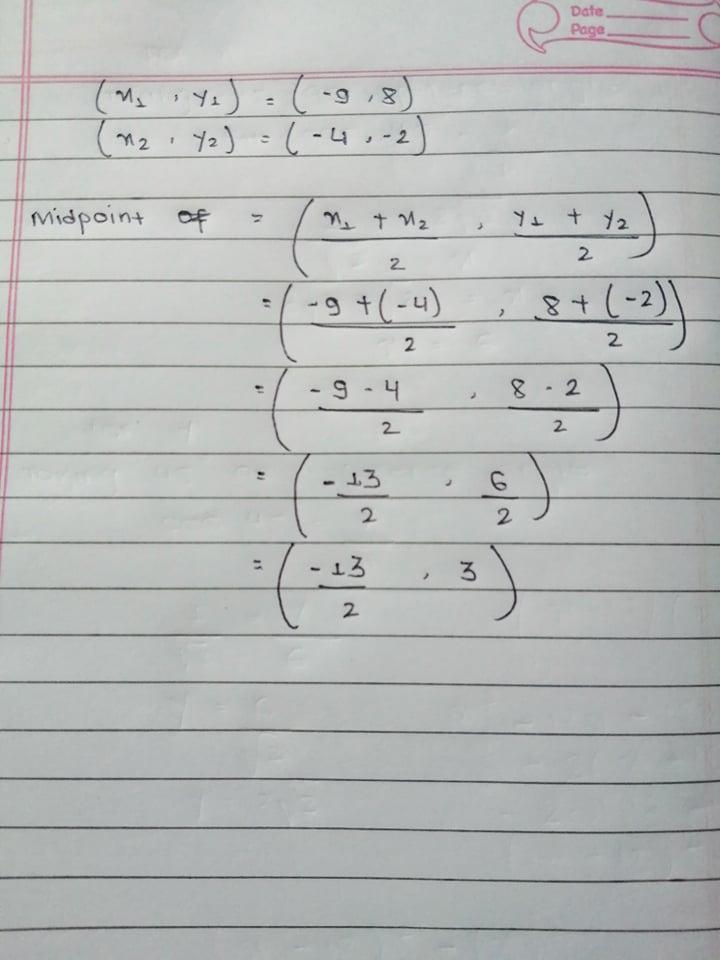 Date
Page
(x₁ , y₁) = (-9 , 8)
(x₂ , y₂) = (-4 , -2)
Midpoint = ( x₁ + x₂ / 2 , y₁ + y₂ / 2 )
= ( -9 + (-4) / 2 , 8 + (-2) / 2 )
= ( -9 - 4 / 2 , 8 - 2 / 2 )
= ( -13 / 2 , 6 / 2 )
= ( -13 / 2 , 3 )